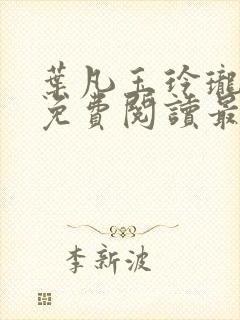 葉凡玉玲瓏
免費閱讀最
李新波